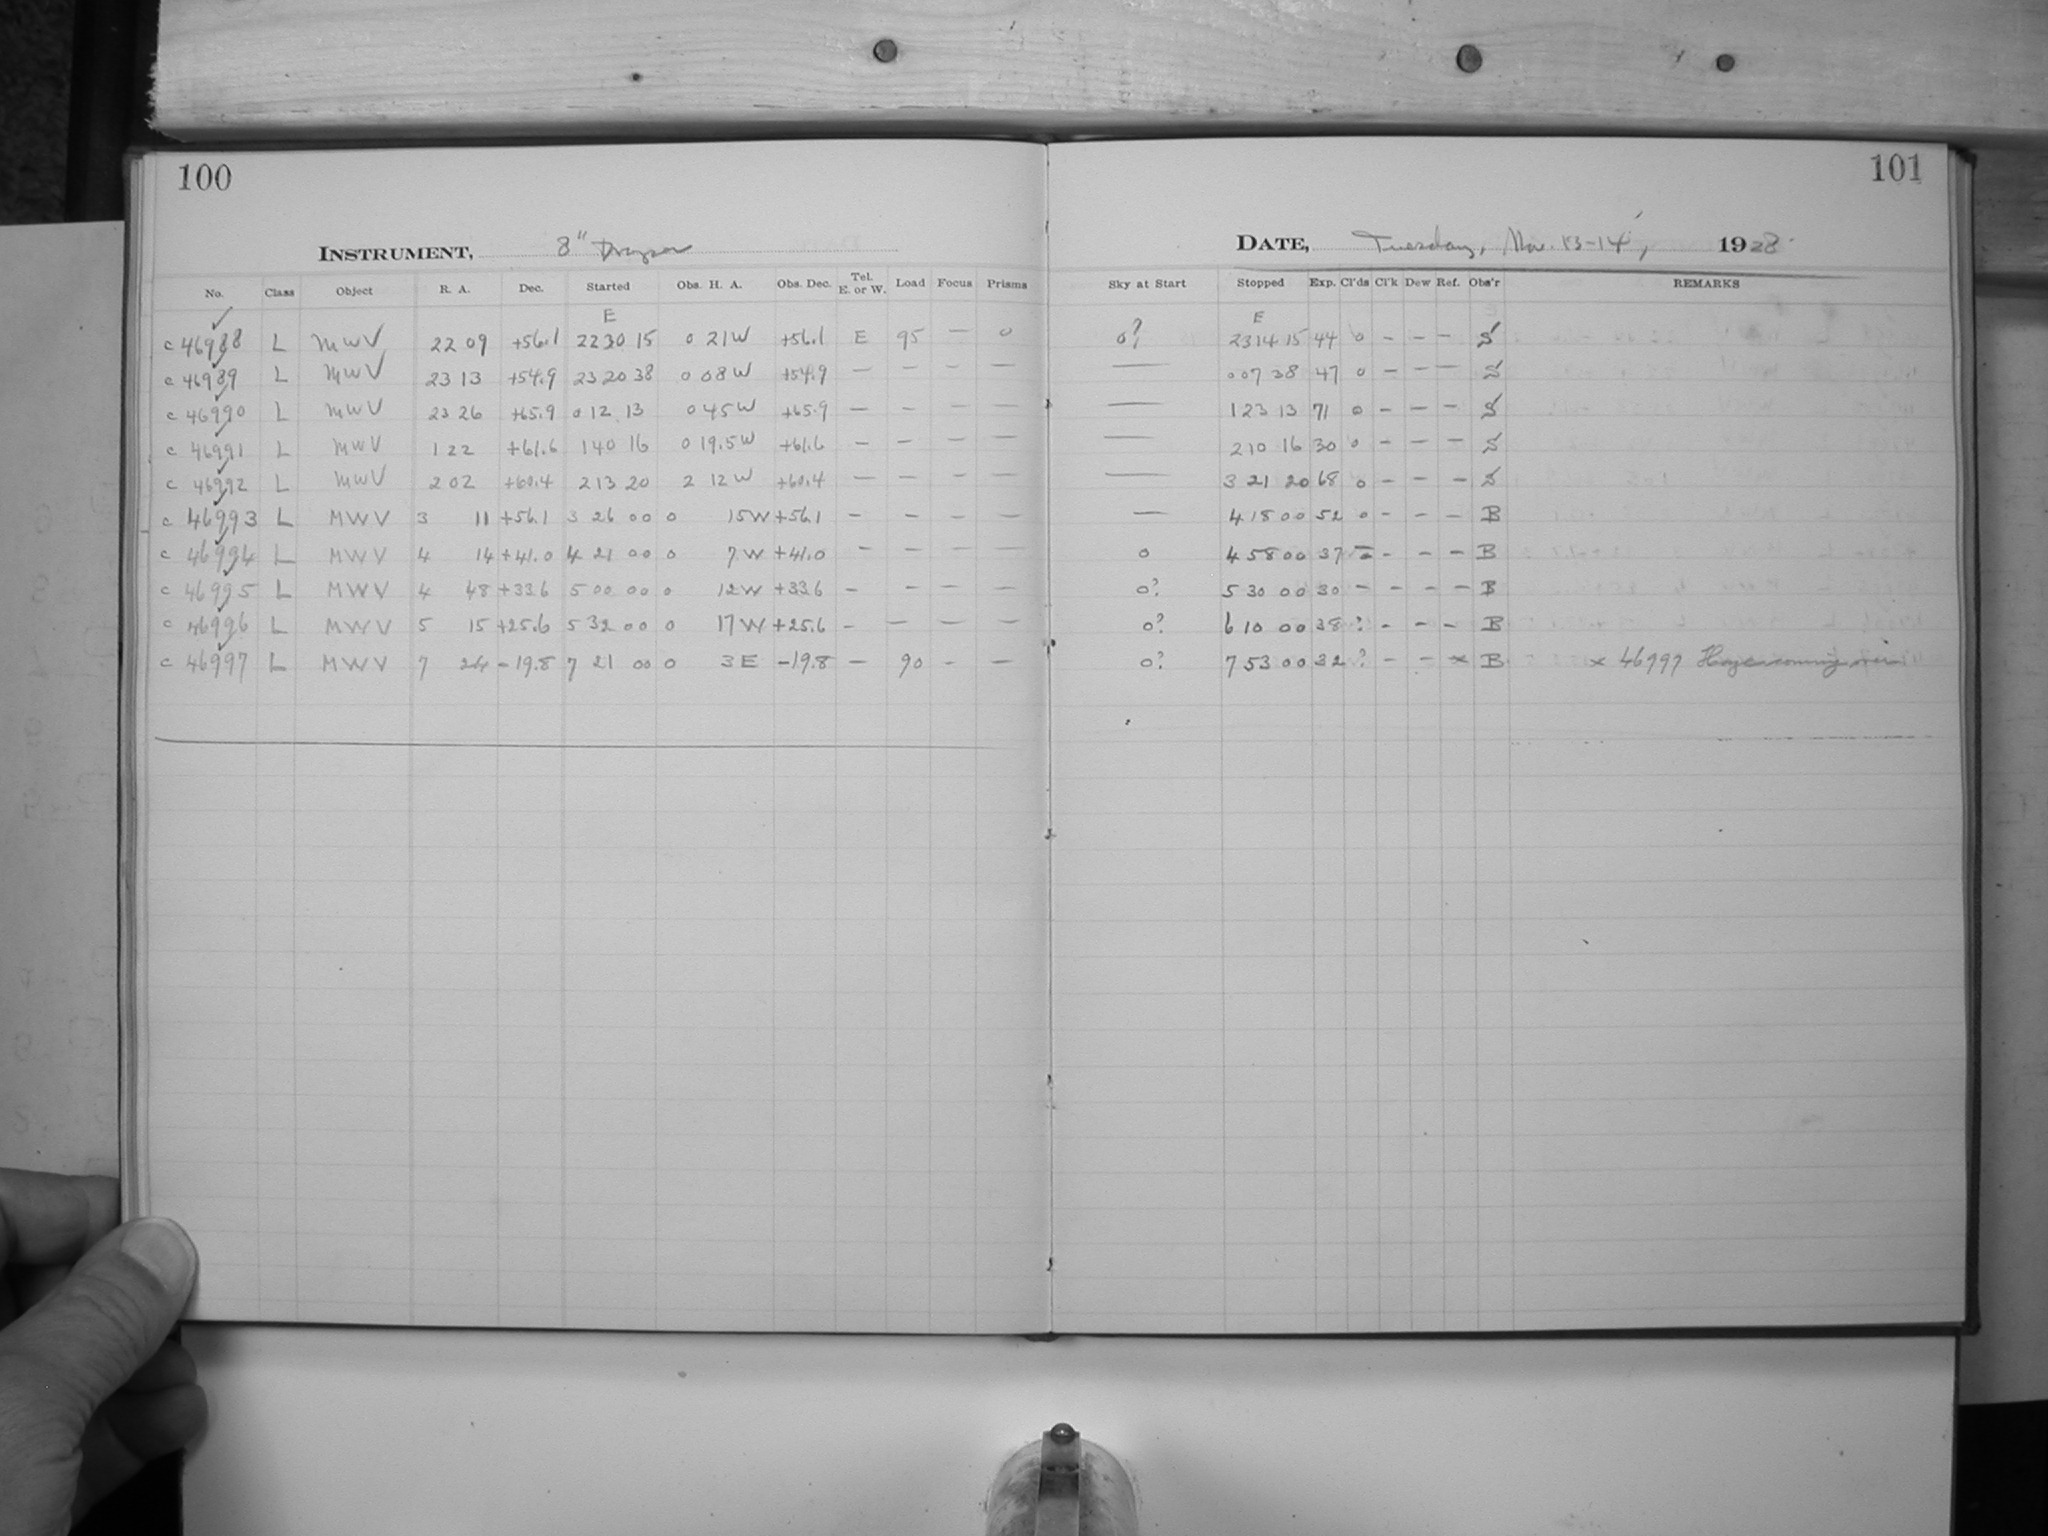 100
INSTRUMENT, 8" Draper
No. Class Object R. A. Dec. Started Obs. H. A. Obs. Dec. Tel. E. or W. Load Focus Prisms
E
c 46988 L MWV 22 09 +56.1 22 30 15 0 21 W +56.1 E 95 — 0
c 46989 L MWV 23 13 +54.9 23 20 38 0 08 W +54.9 — — — —
c 46990 L MWV 23 26 +65.9 0 12 13 0 45 W +65.9 — — — —
c 46991 L MWV 1 22 +61.6 1 40 16 0 19.5 W +61.6 — — — —
c 46992 L MWV 2 02 +60.4 2 13 20 2 12 W +60.4 — — — —
c 46993 L MWV 3 11 +56.1 3 26 00 0 15 W +56.1 — — — —
c 46994 L MWV 4 14 +41.0 4 21 00 0 7 W +41.0 — — — —
c 46995 L MWV 4 48 +33.6 5 00 00 0 12 W +33.6 — — — —
c 46996 L MWV 5 15 +25.6 5 32 00 0 17 W +25.6 — — — —
c 46997 L MWV 7 24 -19.8 7 21 00 0 3 E -19.8 — 90 - —
101
DATE, Tuesday, Nov. 13-14, 1928
Sky at Start Stopped Exp. Cl'ds Cl'k Dew Ref. Obs'r REMARKS
E
0? 23 14 15 44 0 - - - S
— 0 07 38 47 0 - - - S
— 1 23 13 71 0 - - - S
— 2 10 16 30 0 - - - S
— 3 21 20 68 0 - - - S
— 4 18 00 52 0 - - - B
0 4 58 00 37 - - - B
0? 5 30 00 30 - - - - B
0? 6 10 00 38 ? - - - B
0? 7 53 00 32 ? - - x B x 46997 Haze coming over